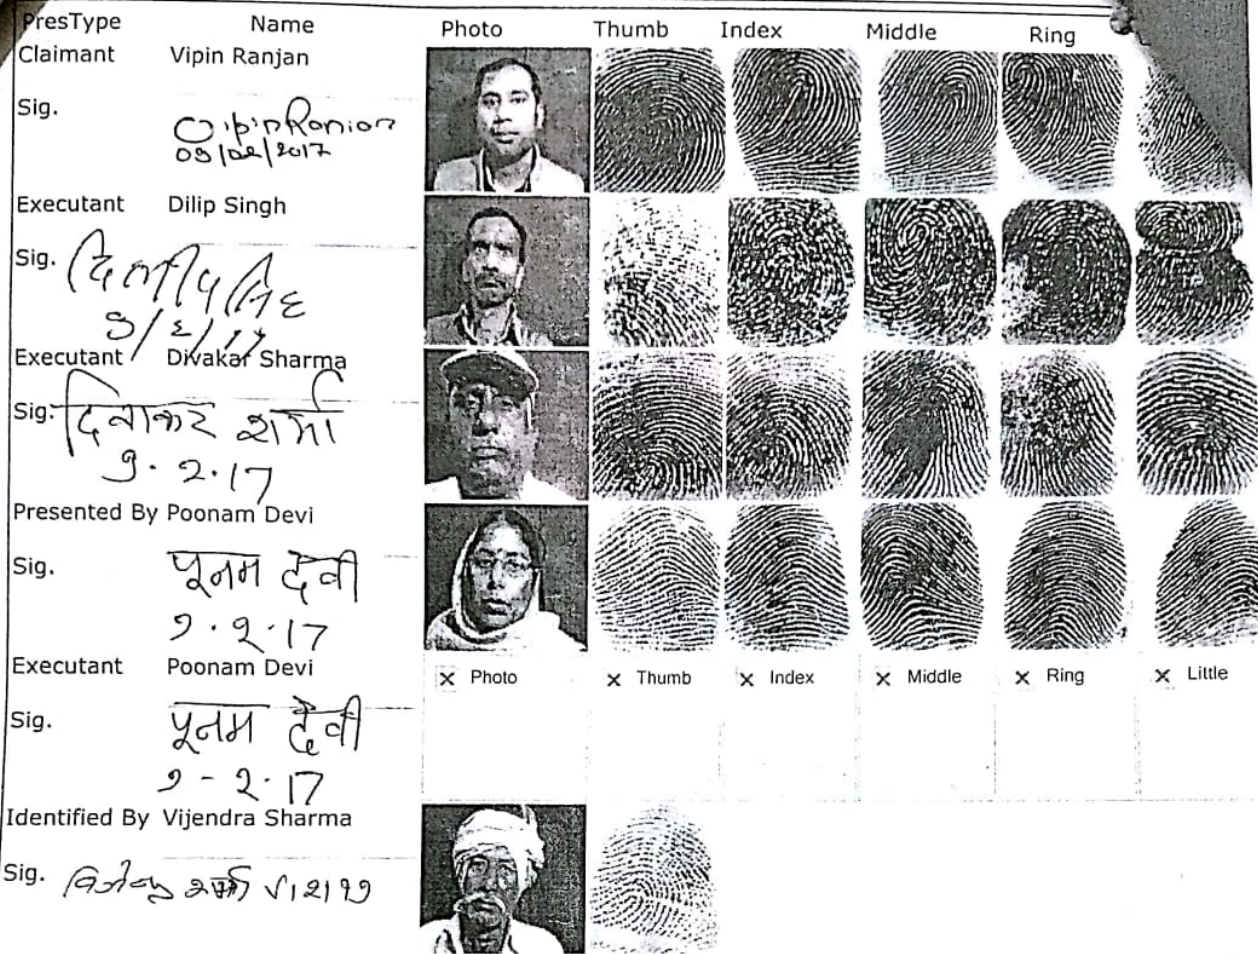 PresType Name Photo Thumb Index Middle Ring
Claimant Vipin Ranjan
Sig. VipinRanjan
09/02/2017
Executant Dilip Singh
Sig. दिलीप सिंह
9/2/17
Executant Divakar Sharma
Sig. दिवाकर शर्मा
9.2.17
Presented By Poonam Devi
Sig. पूनम देवी
9.2.17
Executant Poonam Devi
x Photo x Thumb x Index x Middle x Ring x Little
Sig. पूनम देवी
9-2.17
Identified By Vijendra Sharma
Sig. शर्मा